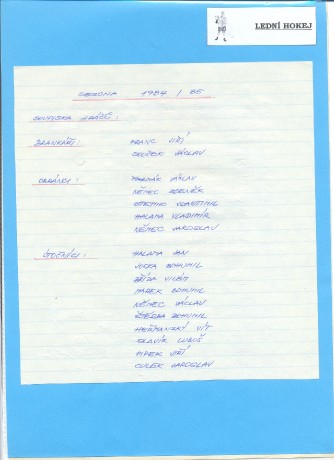 LEDNÍ HOKEJ
SEZONA 1984 / 85
SOUPISKA HRÁČŮ :
BRANKÁŘI : FRANC JIŘÍ
VÁCLAV
OBRÁNCI : VÁCLAV
NĚMEC ZDENĚK
VLASTIMIL
HALAMA VLADIMÍR
NĚMEC JAROSLAV
ÚTOČNÍCI : HALAMA JAN
BOHUMIL
VILÉM
MAREK BOHUMIL
NĚMEC VÁCLAV
BOHUMIL
HEŘMANSKÝ VÍT
SLAVÍK LUBOŠ
PIPEK JIŘÍ
JAROSLAV